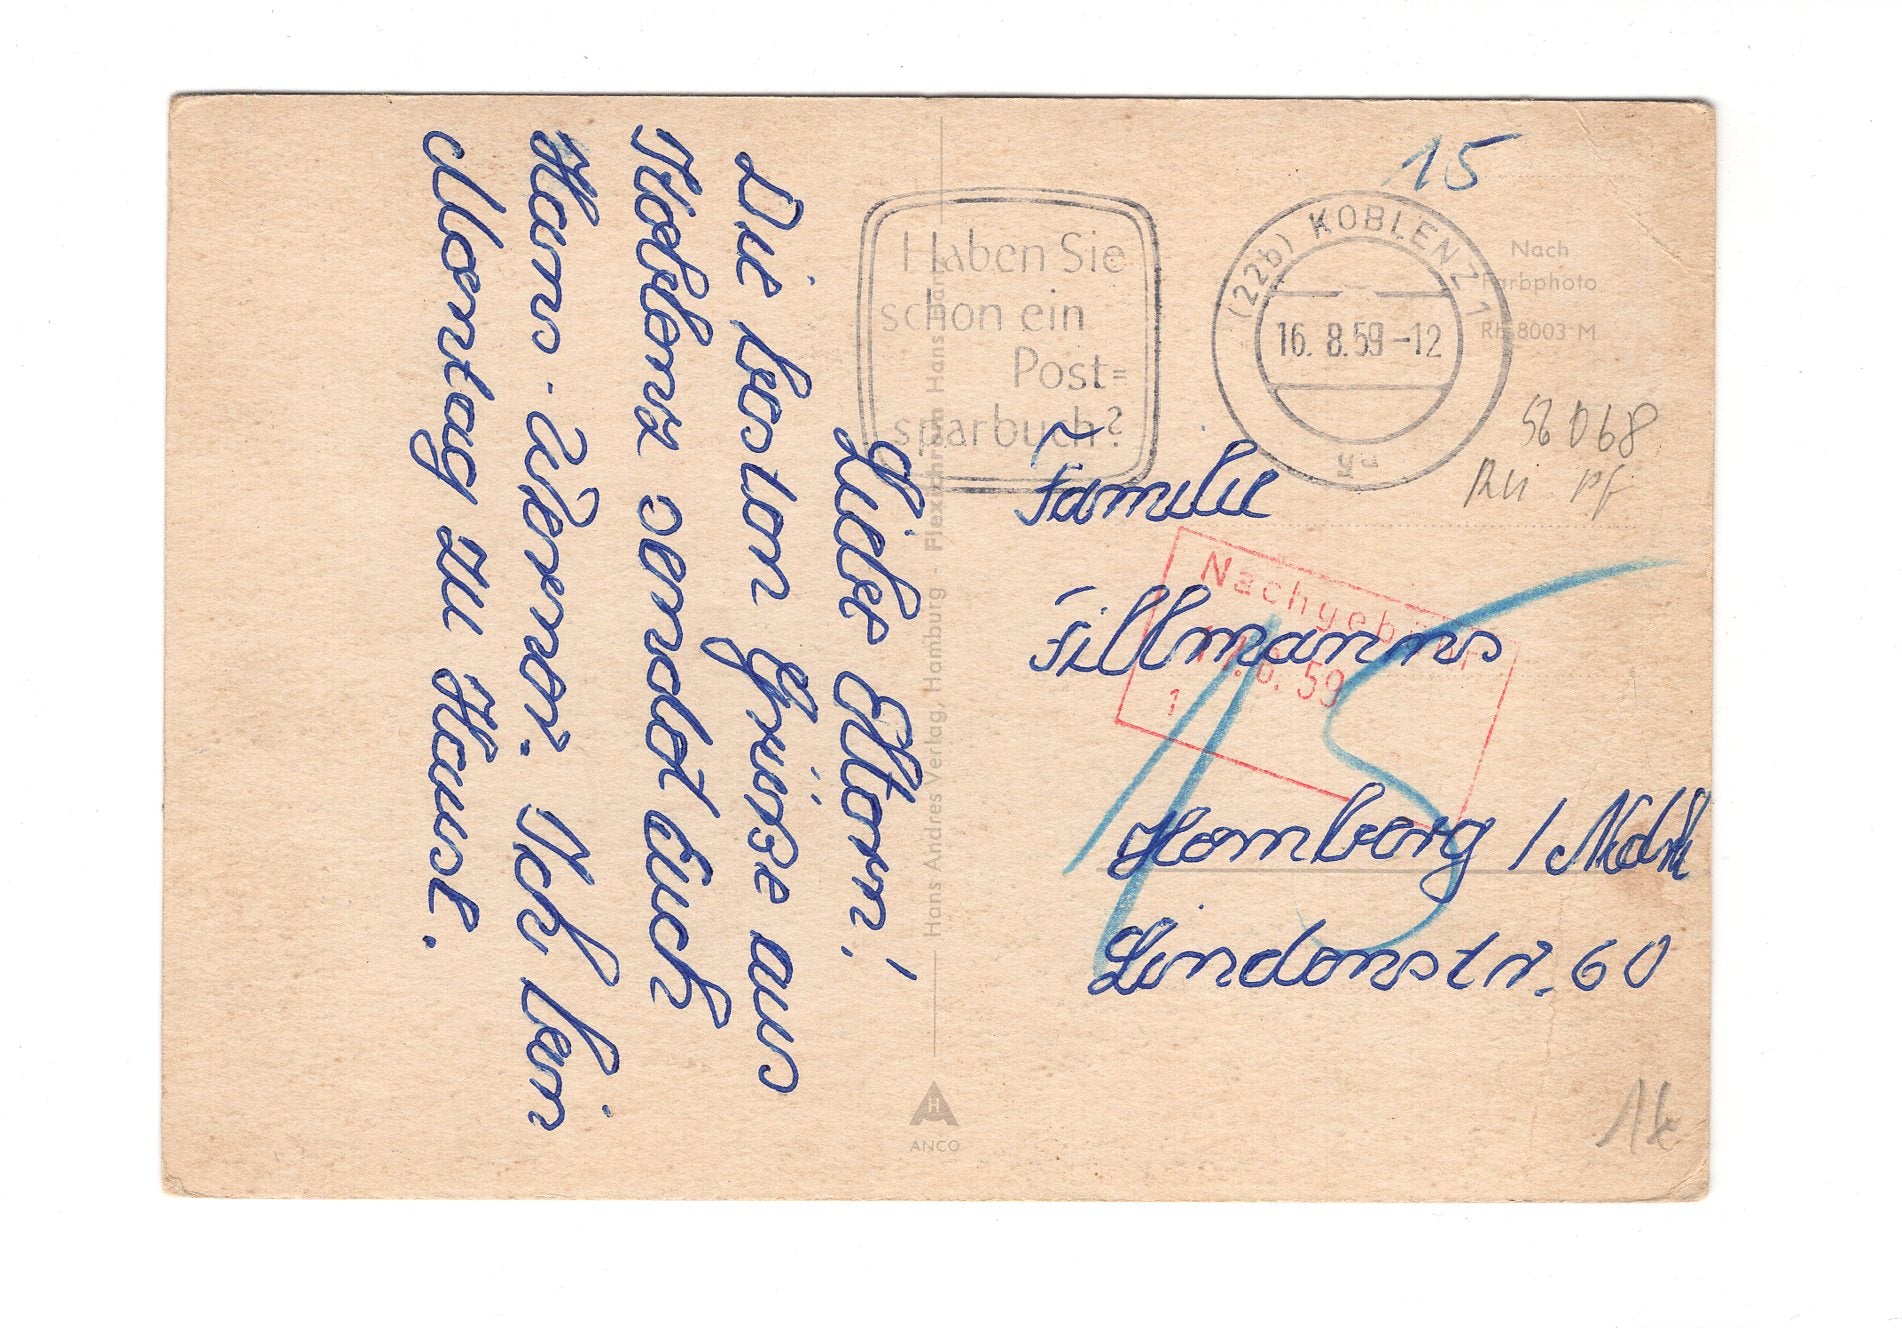 Liebe Eltern!
Die besten Grüße aus
Koblenz sendet Euch
Hans-Werner. Ich bin
Montag zu Hause.
Hans Andres Verlag, Hamburg - Flexichrom Hans
ANCO
Haben Sie
schon ein
Post=
sparbuch?
(22b) KOBLENZ 1
16. 8.59-12
15
Nach
Farbphoto
Rh 8003 M
56068
Familie
Tillmanns
Homberg / Ndrh
Lindenstr. 60
Nachgebühr
17.8.59
1
15
1€